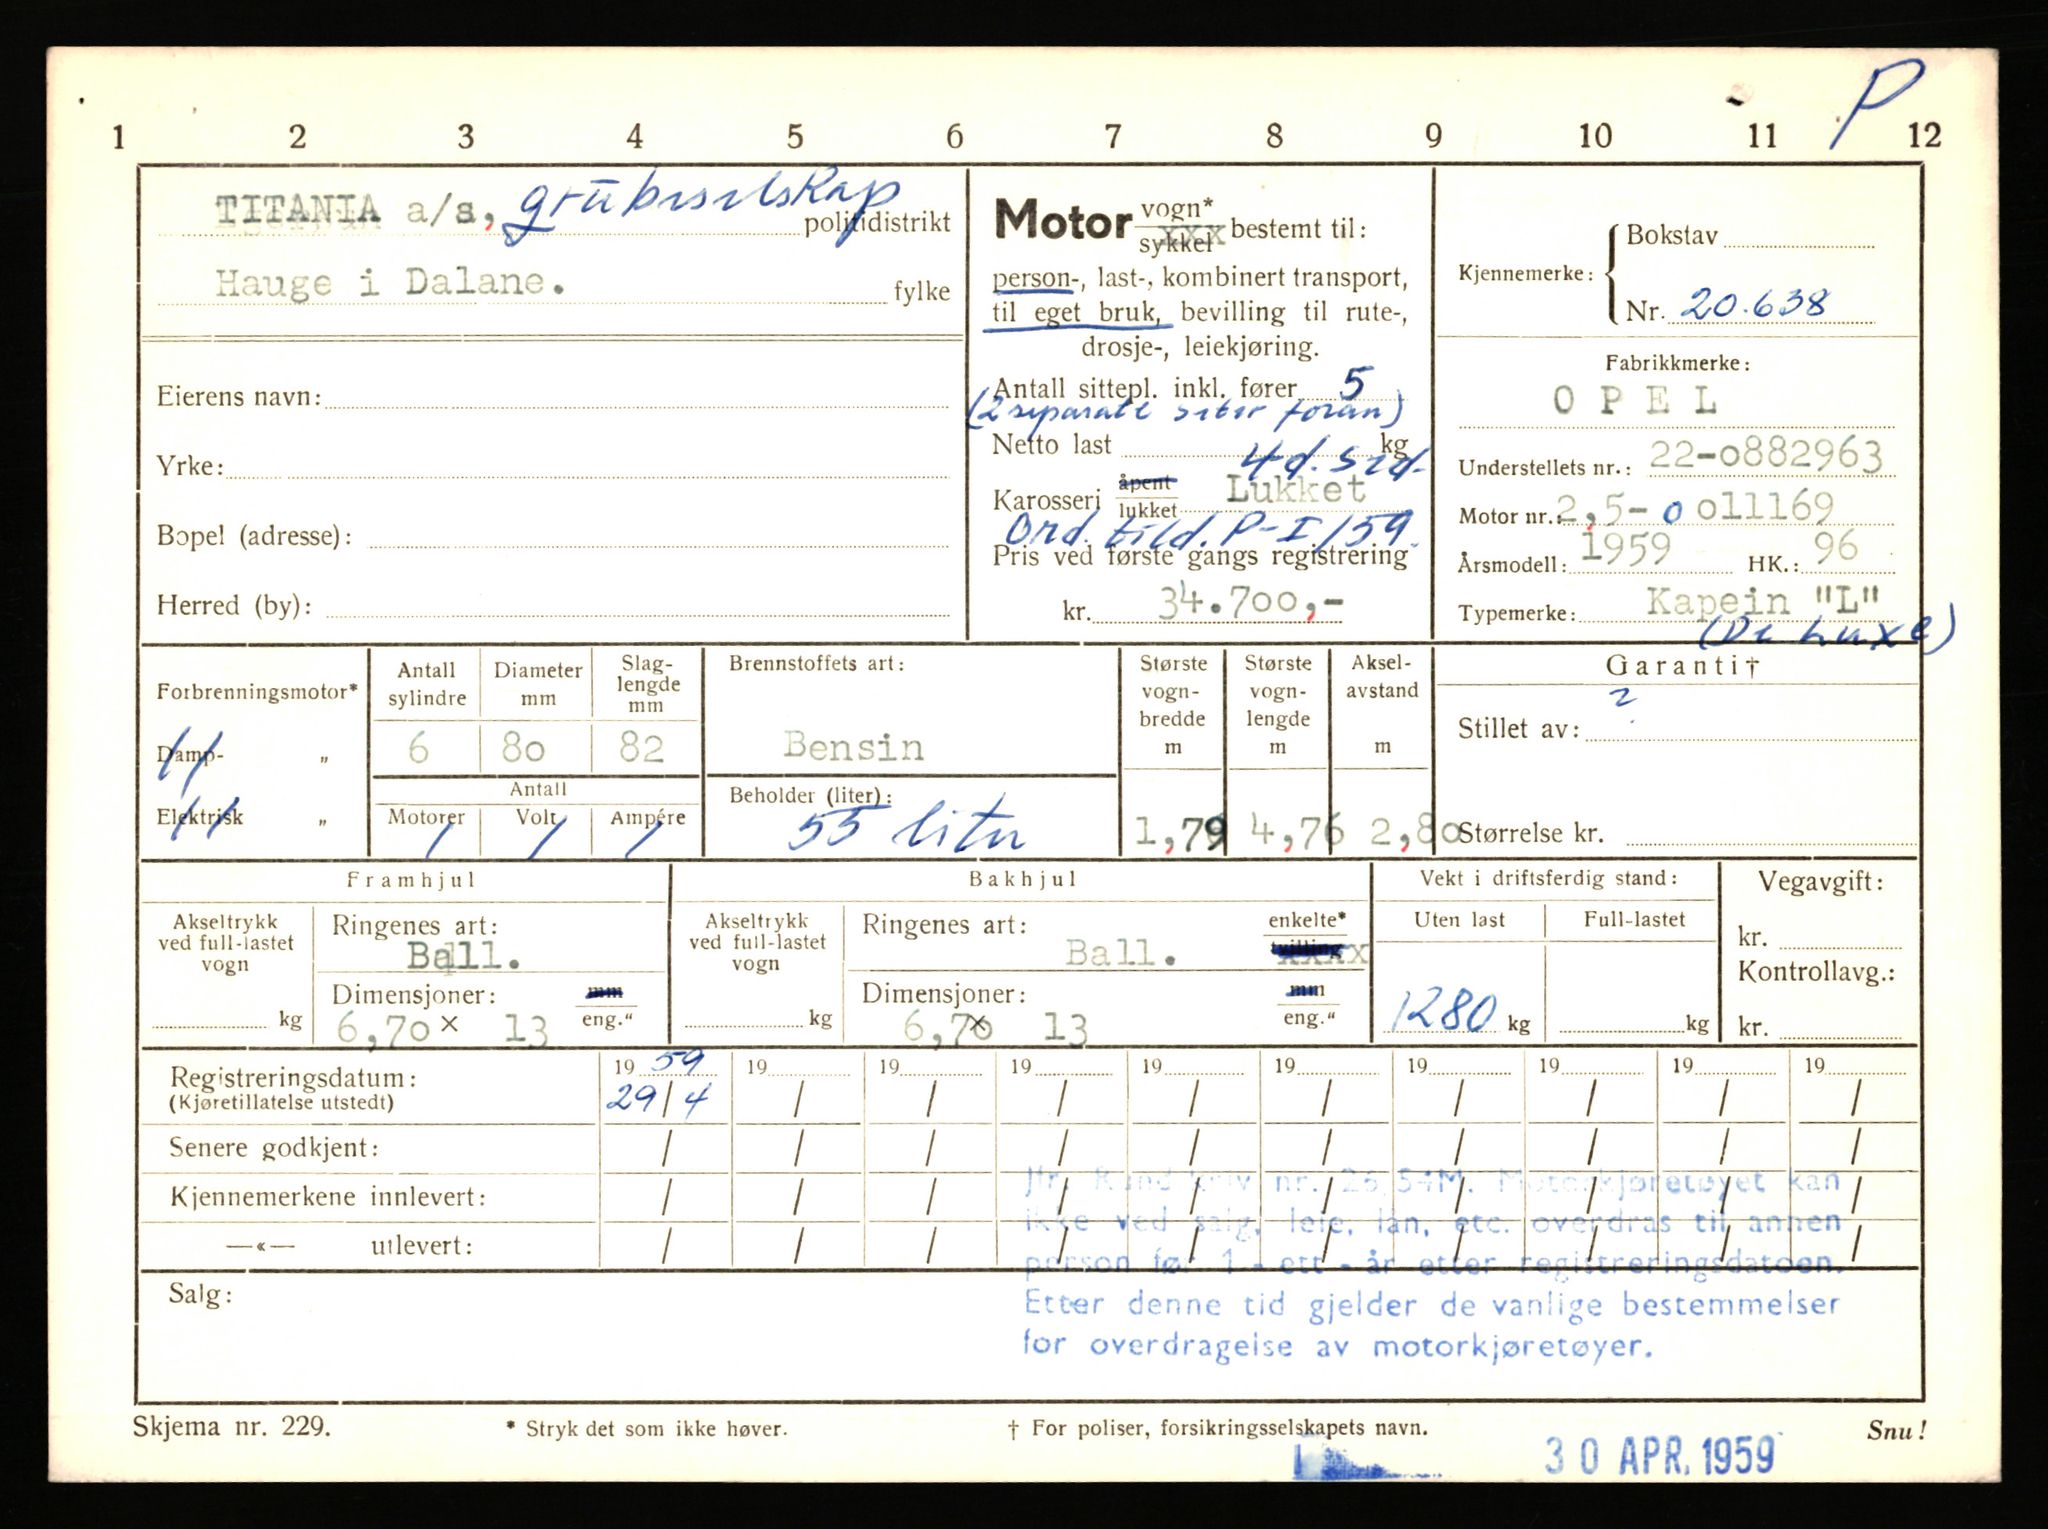 P
1 2 3 4 5 6 7 8 9 10 11 12
TITANIA a/s, grubeselskap politidistrikt
Hauge i Dalane. fylke
Eierens navn:
Yrke:
Bopel (adresse):
Herred (by):
Motor vogn* sykkel xxx bestemt til:
person-, last-, kombinert transport,
til eget bruk, bevilling til rute-,
drosje-, leiekjøring.
Antall sittepl. inkl. fører 5
(2 separate seter foran)
Netto last kg
4 d. sed.
Karosseri åpent lukket Lukket
Ord. tild. P-I/59.
Pris ved første gangs registrering
kr. 34.700,-
Kjennemerke: Bokstav
Nr. 20.638
Fabrikkmerke:
OPEL
Understellets nr.: 22-0882963
Motor nr.: 2,5-0 011169
Årsmodell: 1959 HK.: 96
Typemerke: Kapein "L"
(De Luxe)
Forbrenningsmotor*
Damp- „
Elektrisk „
Antall sylindre
6
Diameter mm
80
Slag-lengde mm
82
Antall
Motorer Volt Ampére
Brennstoffets art:
Bensin
Beholder (liter):
55 liter
Største vogn-bredde m
1,79
Største vogn-lengde m
4,76
Aksel-avstand m
2,80
Garanti†
Stillet av: ?
Størrelse kr.
Framhjul
Akseltrykk ved full-lastet vogn
kg
Ringenes art:
Ball.
Dimensjoner: mm eng."
6,70 x 13
Bakhjul
Akseltrykk ved full-lastet vogn
kg
Ringenes art: enkelte* tvilling xxxx
Ball.
Dimensjoner: mm eng."
6,70 x 13
Vekt i driftsferdig stand:
Uten last Full-lastet
1280 kg kg
Vegavgift:
kr.
Kontrollavg.:
kr.
Registreringsdatum: 19 59 19 19 19 19 19 19 19 19 19
(Kjøretillatelse utstedt) 29/4 / / / / / / / / /
Senere godkjent: / / / / / / / / / /
Kjennemerkene innlevert: / / / / / / / / / /
—«— utlevert: / / / / / / / / / /
Jfr. Rundskriv nr. 26/54M. Motorkjøretøyet kan
ikke ved salg, leie, lån, etc. overdras til annen
person før 1 - ett - år etter registreringsdatoen.
Etter denne tid gjelder de vanlige bestemmelser
for overdragelse av motorkjøretøyer.
Salg:
Skjema nr. 229. * Stryk det som ikke høver. † For poliser, forsikringsselskapets navn. Snu!
30 APR. 1959